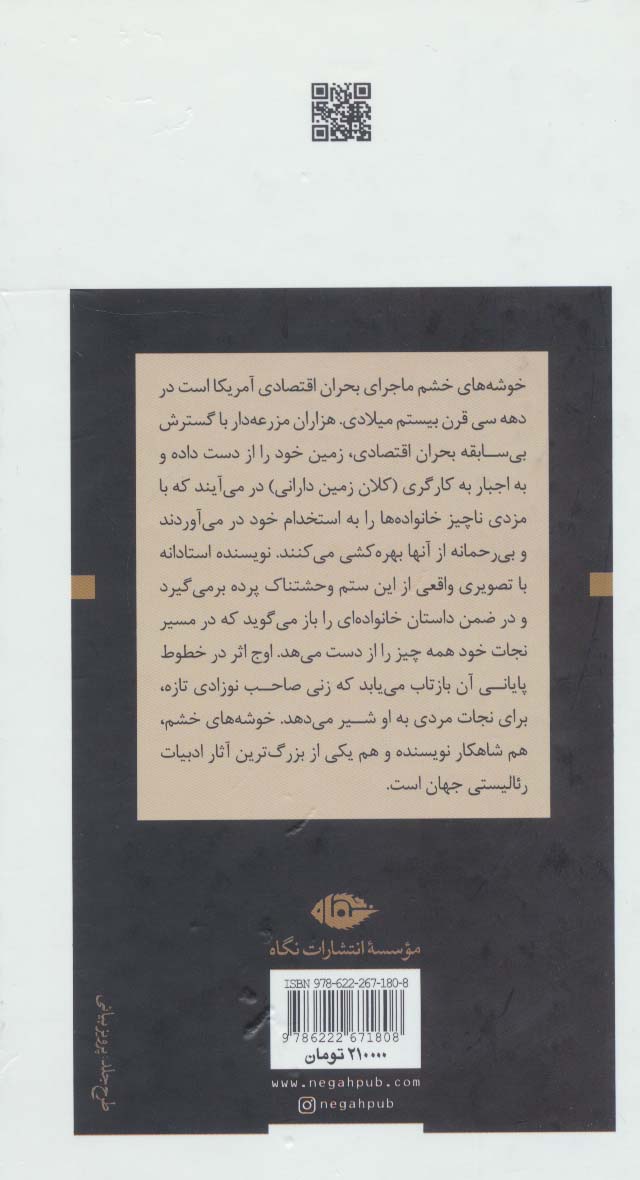 خوشه‌های خشم ماجرای بحران اقتصادی آمریکا است در
دهه سی قرن بیستم میلادی. هزاران مزرعه‌دار با گسترش
بی‌سابقه بحران اقتصادی، زمین خود را از دست داده و
به اجبار به کارگری (کلان زمین دارانی) در می‌آیند که با
مزدی ناچیز خانواده‌ها را به استخدام خود در می‌آوردند
و بی‌رحمانه از آنها بهره‌کشی می‌کنند. نویسنده استادانه
با تصویری واقعی از این ستم وحشتناک پرده برمی‌گیرد
و در ضمن داستان خانواده‌ای را باز می‌گوید که در مسیر
نجات خود همه چیز را از دست می‌هد. اوج اثر در خطوط
پایانی آن بازتاب می‌یابد که زنی صاحب نوزادی تازه،
برای نجات مردی به او شیر می‌دهد. خوشه‌های خشم،
هم شاهکار نویسنده و هم یکی از بزرگ‌ترین آثار ادبیات
رئالیستی جهان است.
نگاه
مؤسسهٔ انتشارات نگاه
ISBN 978-622-267-180-8
9 786222 671808
۲۱۰۰۰۰ تومان
www.negahpub.com
negahpub
طرح جلد: پرویز بیانی